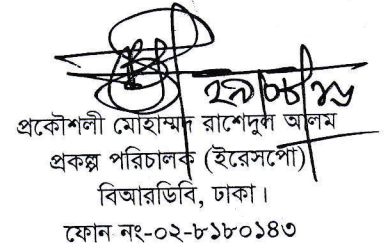 প্রকৌশলী মোহাম্মদ রাশেদুল আলম
প্রকল্প পরিচালক (ইরেসপো)
বিআরডিবি, ঢাকা।
ফোন নং-০২-৮১৮০১৪৩